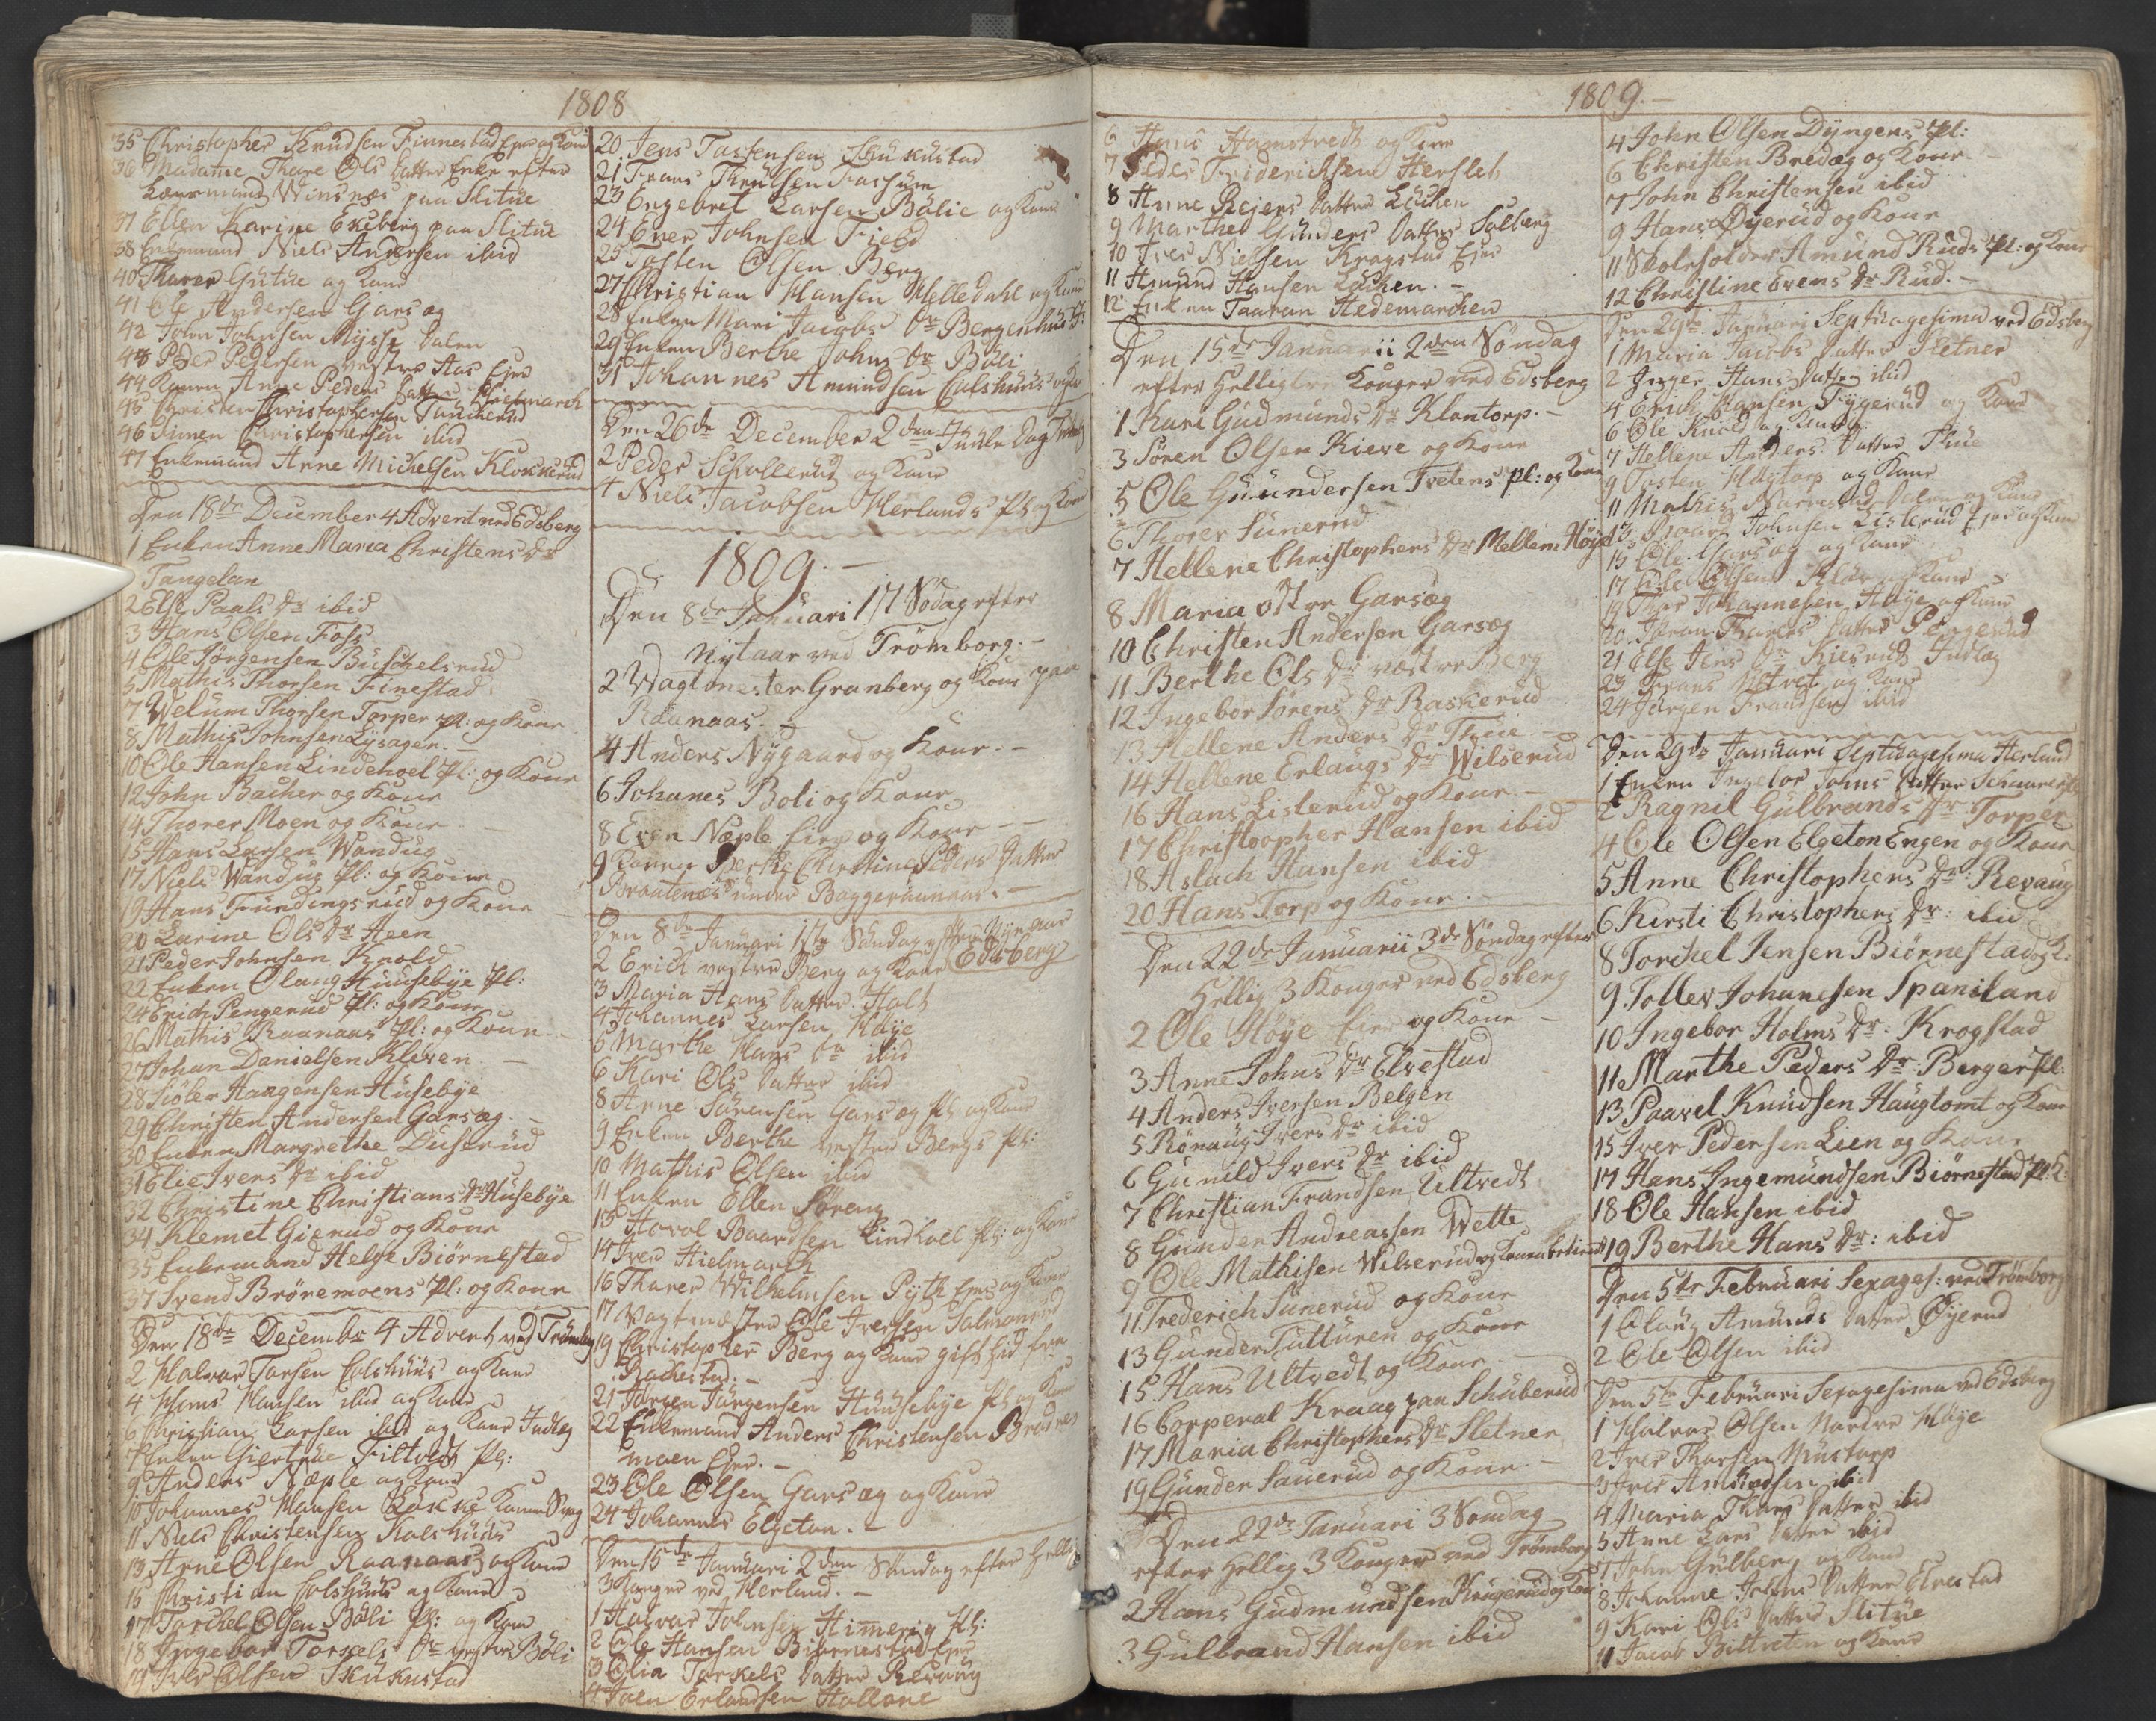 1808
35 Christopher Knudsen Finnestad Ejer og Kone
36 Madame Thare Ols Datter Enke efter
Winsnæs paa Slitue
37 Ellen Karine Ekeberg paa Slitue
38 Enkemand Niels Andersen ibid
40 Tharer Gutue og Kone
41 Ole Andersen Garsæg
42 John Johnsen Mysse Dalen
43 Peder Pedersen vestre Aas Ejer
44 Konen Anne Peders Datter
45 Christen Christophersen
46 Simen Christophersen ibid
47 Enkemand Arne Michelsen Klokkerud
Den 18de December 4 Advent ved Edsberg
1 Enken Anne Maria Christens Dr
Tangelan
2 Else Paals Dr ibid
3 Hans Olsen Foss
4 Ole Jörgensen Buschelsrud
5 Mathis Thorsen Finestad
7 Welum Thorsen Torper Pl: og Kone
8 Mathis Johnsen Lysagen. -
10 Ole Hansen Lindehoel Pl: og Kone
12 John Bacher og Kone
14 Thorer Moen og Kone
15 Hans Larsen Wandug
17 Niels Wandug Pl: og Kone
19 Hans Fundingsrud og Kone
20 Larine Ols Dr Heen
21 Peder Johnsen Knold
22 Enken Olaug Huusebye Pl:
24 Erich Pengerud Pl: og Kone
26 Mathis Raanaas Pl: og Kone
27 Johan Danielsen Kleven. -
28 Siöler Haagensen Husebye
29 Christen Andersen Garsæg. -
30 Enken Margrethe Duserud
31 Elie Ivers Dr ibid
32 Christine Christians Dr Husebye
34 Klemet Gierud og Kone
35 Enkemand Helge Biörnestad
37 Svend Bröremoens Pl: og Kone
Den 18de Decembr 4 Advent ved Trömborg
2 Halvor Torsen Colshuus og Kone
4 Hans Hansen ibid og Kone
6 Christian Larsen ibid og Kone Inderst
7 Enken Giertrue Filtvedt Pl:
9 Anders Næple og Kone
10 Johannes Hansen
11 Niels Christensen Kolshuus
13 Arne Olsen Raanaas og Kone
15 Christian Colshuus og Kone
17 Torchel Olsen Böli Pl: og Kone
18 Ingebor Torkels Dr vestre Böli
19 Iver Olsen Skukustad
20 Jens Tostensen Skukustad
21 Frans Truelsen
23 Engebret Larsen Bölie og Kone
24 Even Johnsen Field
25 Tosten Olsen Berg
27 Christian Hansen Helledahl og Kone
28 Enken Mari Jacobs Dr Bergenhus
29 Enken Berthe Johns Dr Böli
31 Johannes Amundsen Colshuus og Ko
Den 26de December 2den Juule Dag
2 Peder Schollerud og Kone
4 Niels Jacobsen Herlands Pl: og Kone
1809. -
Den 8de Januari 1st Södag efter
Nytaar ved Trömborg. -
2 Vagtmester Granberg og Kone paa
Raanaas. -
4 Anders Nygaard og Kone. -
6 Johanes Boli og Kone
8 Even Næple Eier og Kone - -
9 Konen Berthe Christine Peders Datter
Brautenæs under Baggeraunaas. -
Den 8de Januari 1ste Söndag efter Nye aar
2 Erich vestre Berg og Kone Edsberg
3 Maria Hans Datter Holt
4 Johannes Larsen Höye
5 Marthe Hans Dr ibid
6 Kari Ols Datter ibid
8 Arne Sörensen Garsæg Pl: og Kone
9 Enken Berthe vestre Bergs Pl:
10 Mathis Olsen ibid
11 Enken Ellen Söreng
13 Haavel Baardsen Lindhoel Pl: og Kone
14 Iver Hielmark
16 Tharer Wilhelmsen Pyth Ejer og Kone
17 Vagtmester Ole Iversen Salmonrud
19 Christopher Berg og Kone gift hid fra
Rachestad. -
21 Jörgen Jürgensen Huusebye Pl: og Kone
22 Enkemand Anders Christensen Bröre
moen Ejer. -
23 Ole Olsen Garsæg og Kone
24 Johannes Elgeton. -
Den 15de Januari 2den Söndag efter Hellig
3 Konger ved Herland. -
1 Halvor Johnsen Himerig Pl:
2 Ole Hansen Biörnestad Ejer
3 Olia Torkels Datter Revaug
4 Joen Erlandsen Hallane
1809. -
6 Hans Hamstvedt og Kone
7 Peder Friderichsen Hersleth
8 Anne Rejers Datter Löchen
9 Marthe Gunders Datter Solberg
10 Iver Nielsen Kragstad Ejer
11 Amund Hansen Löchen. -
12 Enken Taaran Hedemarchen
Den 15de Januarii 2den Söndag
efter Hellig tre Konger ved Edsberg
1 Kari Gudmunds Dr Klontorp. -
3 Sören Olsen Kieve og Kone
5 Ole Gundersen Tvetens Pl: og Kone
6 Thorer Sunerud
7 Hellene Christophers Dr Mellem Höye
8 Maria östre Garsæg
10 Christen Andersen Garsæg
11 Berthe Ols Dr væstre Berg
12 Ingebor Sörens Dr Raskerud
13 Hellene Anders Dr Thue -
14 Hellene Erlaugs Dr Wilserud
16 Hans Lislerud og Kone. -
17 Christopher Hansen ibid
18 Aslach Hansen ibid
20 Hans Torp og Kone. -
Den 22de Januarii 3de Söndag efter
Hellig 3 Konger ved Edsberg
2 Ole Höye Eier og Kone -
3 Anne Johns Dr Elvestad
4 Anders Iversen Belgen
5 Rönnaug Ivers Dr ibid
6 Gunild Ivers Dr ibid
7 Christian Frandsen Ultvedt
8 Gunder Andreassen Wette
9 Ole Mathisen Wilserud og Kone
11 Frederich Sunerud og Kone
13 Gunder Tutturen og Kone
15 Hans Ultvedt og Kone. -
16 Corperal Kraag paa Schuberud
17 Maria Christophers Dr Sletner
19 Gunder Sauerud og Kone. -
Den 22de Januari 3 Söndag
efter Hellig 3 Konger ved Trömborg
2 Hans Gudmundsen Krugerud og Kone
3 Gulbrand Hansen ibid
4 John Olsen Dyngers Pl:
6 Christen Bredæg og Kone. -
7 John Christensen ibid
9 Hans Dyerud og Kone
11 Skoleholder Amund Ruds Pl: og Kone
12 Christine Evens Dr Rud. -
Den 29de Januari Septuagesima ved Edsberg
1 Maria Jacobs Datter Sletner
2 Inger Hans Datter ibid
4 Erich Hansen Tygerud og Kone
6 Ole Knold og Kone
7 Hellene Anders Datter Thue
9 Tosten Haytorp og Kone
11 Mathis Narvestad Dalen og Kone
13 Baard Johnsen Lislerud Ejer og Kone
15 Ole Garsæg og Kone
17 Ole Olsen og Kone
19 Johannesen Höye og Kone
20 Joran Tharers Datter Pengerud
21 Else Jens Dr Kiesrud Inderst
23 Frans Ultvet og Kone
24 Jörgen Frandsen ibid
Den 29de Januari Septuagesima Herland
1 Enken Ingebor Johns Datter
2 Ragnil Gulbrands Dr Torper
4 Ole Olsen Elgeton Engen og Kone
5 Anne Christophers Dr: Revaug
6 Kirsti Christophers Dr: ibid
8 Torchel Jensen Biörnestad og K:
9 Soller Johanesen Spaniland
10 Ingebor Holms Dr. Krogstad
11 Marthe Peders Dr Berger Pl.
13 Paavel Knudsen Haugtomt og Kone
15 Iver Pedersen Lien og Kone
17 Hans Ingemundsen Biörnestad Pl: K
18 Ole Hansen ibid
19 Berthe Hans Dr: ibid
Den 5te Februari Sexages: ved Trömborg
1 Olaug Amunds Datter Öyerud
2 Ole Olsen ibid
Den 5te Februari Sexagesima ved Edsberg
1 Halvor Olsen Nordre Höye
2 Iver Thorsen Mustorp
3 Iver Amundsen ibid
4 Maria Thors Datter ibid
5 Anne Lars Datter ibid
7 John Gulberg og Kone
8 Johanne Johns Datter Elvestad
9 Kari Ols Datter Slitue
11 Jacob Biltvten og Kone